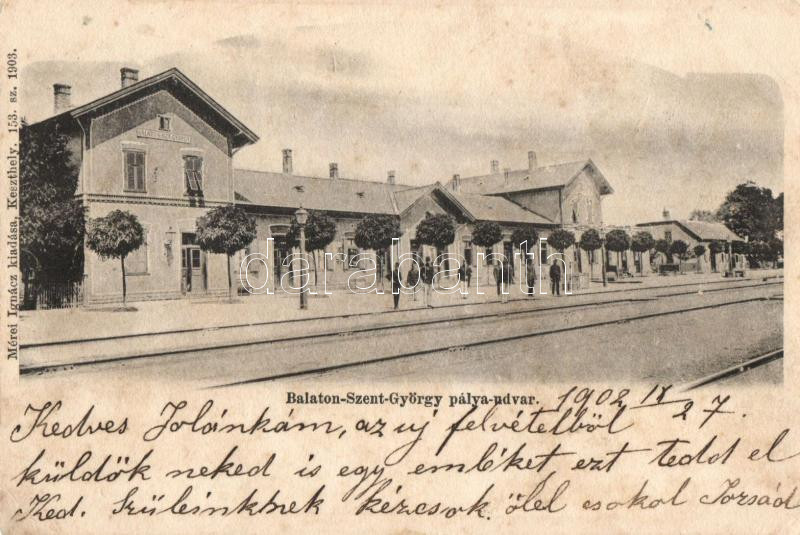 Mérei Ignácz kiadása, Keszthely. 153. sz. 1903.
darabanth.com
Balaton-Szent-György pálya-udvar. 1902 IX/27.
Kedves Jolánkám, az uj felvételböl
küldök neked is egy emléket ezt tedd el
Ked. Szüleinknek kézcsok. ölel csokol Jozsád